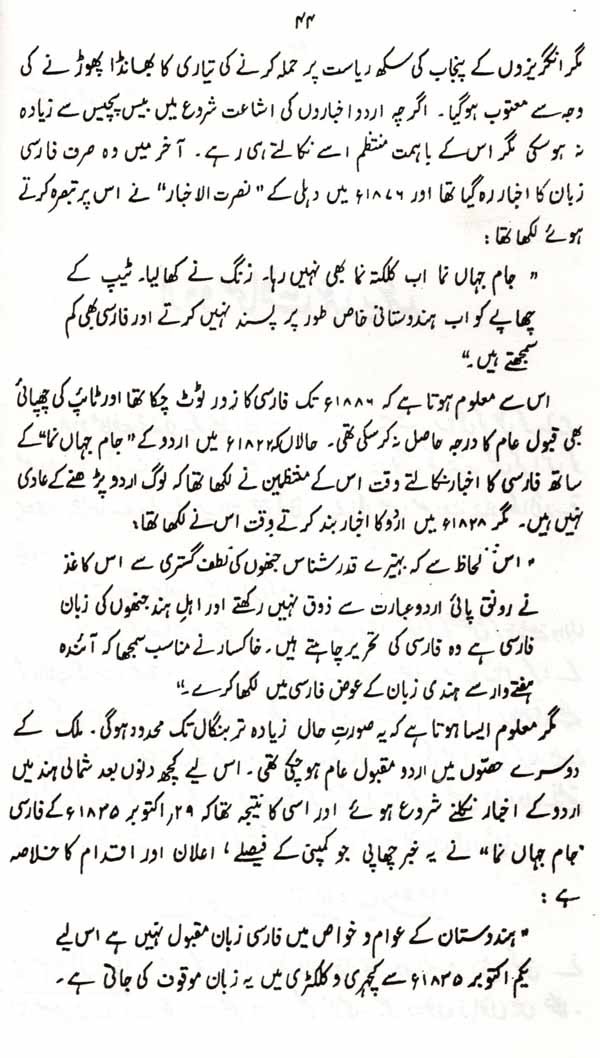 ۴۴
مگر انگریزوں کے پنجاب کی سکھ ریاست پر حملہ کرنے کی تیاری کا بھانڈا پھوڑنے کی
وجہ سے معتوب ہوگیا۔ اگرچہ اردو اخباروں کی اشاعت شروع میں بیس پچیس سے زیادہ
نہ ہوسکی مگر اس کے باہمت منتظم اسے نکالتے ہی رہے۔ آخر میں وہ صرف فارسی
زبان کا اخبار رہ گیا تھا اور ۱۸۷۶ء میں دہلی کے "نصرت الاخبار" نے اس پر تبصرہ کرتے
ہوئے لکھا تھا:
" جام جہاں نما اب کلکتہ نما بھی نہیں رہا۔ زنگ نے کھا لیا۔ ٹیپ کے
چھاپے کو اب ہندوستانی خاص طور پر پسند نہیں کرتے اور فارسی بھی کم
سمجھتے ہیں۔"
اس سے معلوم ہوتا ہے کہ ۱۸۸۶ء تک فارسی کا زور ٹوٹ چکا تھا اور ٹائپ کی چھپائی
بھی قبول عام کا درجہ حاصل نہ کرسکی تھی۔ حالاں کہ ۱۸۲۲ء میں اردو کے "جام جہاں نما" کے
ساتھ فارسی کا اخبار نکالتے وقت اس کے منتظمین نے لکھا تھا کہ لوگ اردو پڑھنے کے عادی
نہیں ہیں۔ مگر ۱۸۲۸ء میں اردو کا اخبار بند کرتے وقت اس نے لکھا تھا:
" اس لحاظ سے کہ بہتیرے قدر شناس جنھوں کی لطف گستری سے اس کاغذ
نے رونق پائی اردو عبارت سے ذوق نہیں رکھتے اور اہلِ ہند جنھوں کی زبان
فارسی ہے وہ فارسی کی تحریر چاہتے ہیں۔ خاکسار نے مناسب سمجھا کہ آئندہ
ہفتے وار سے ہندی زبان کے عوض فارسی میں لکھا کرے۔"
مگر معلوم ایسا ہوتا ہے کہ یہ صورتِ حال زیادہ تر بنگال تک محدود ہوگی۔ ملک کے
دوسرے حصّوں میں اردو مقبول عام ہوچکی تھی۔ اس لیے کچھ دنوں بعد شمالی ہند میں
اردو کے اخبار نکلنے شروع ہوئے اور اسی کا نتیجہ تھا کہ ۲۹؍ اکتوبر ۱۸۳۵ء کے فارسی
"جام جہاں نما" نے یہ خبر چھاپی جو کمپنی کے فیصلے، اعلان اور اقتدام کا خلاصہ
ہے:
" ہندوستان کے عوام و خواص میں فارسی زبان مقبول نہیں ہے اس لیے
یکم اکتوبر ۱۸۳۵ء سے کچہری و کلکٹری میں یہ زبان موقوف کی جاتی ہے۔